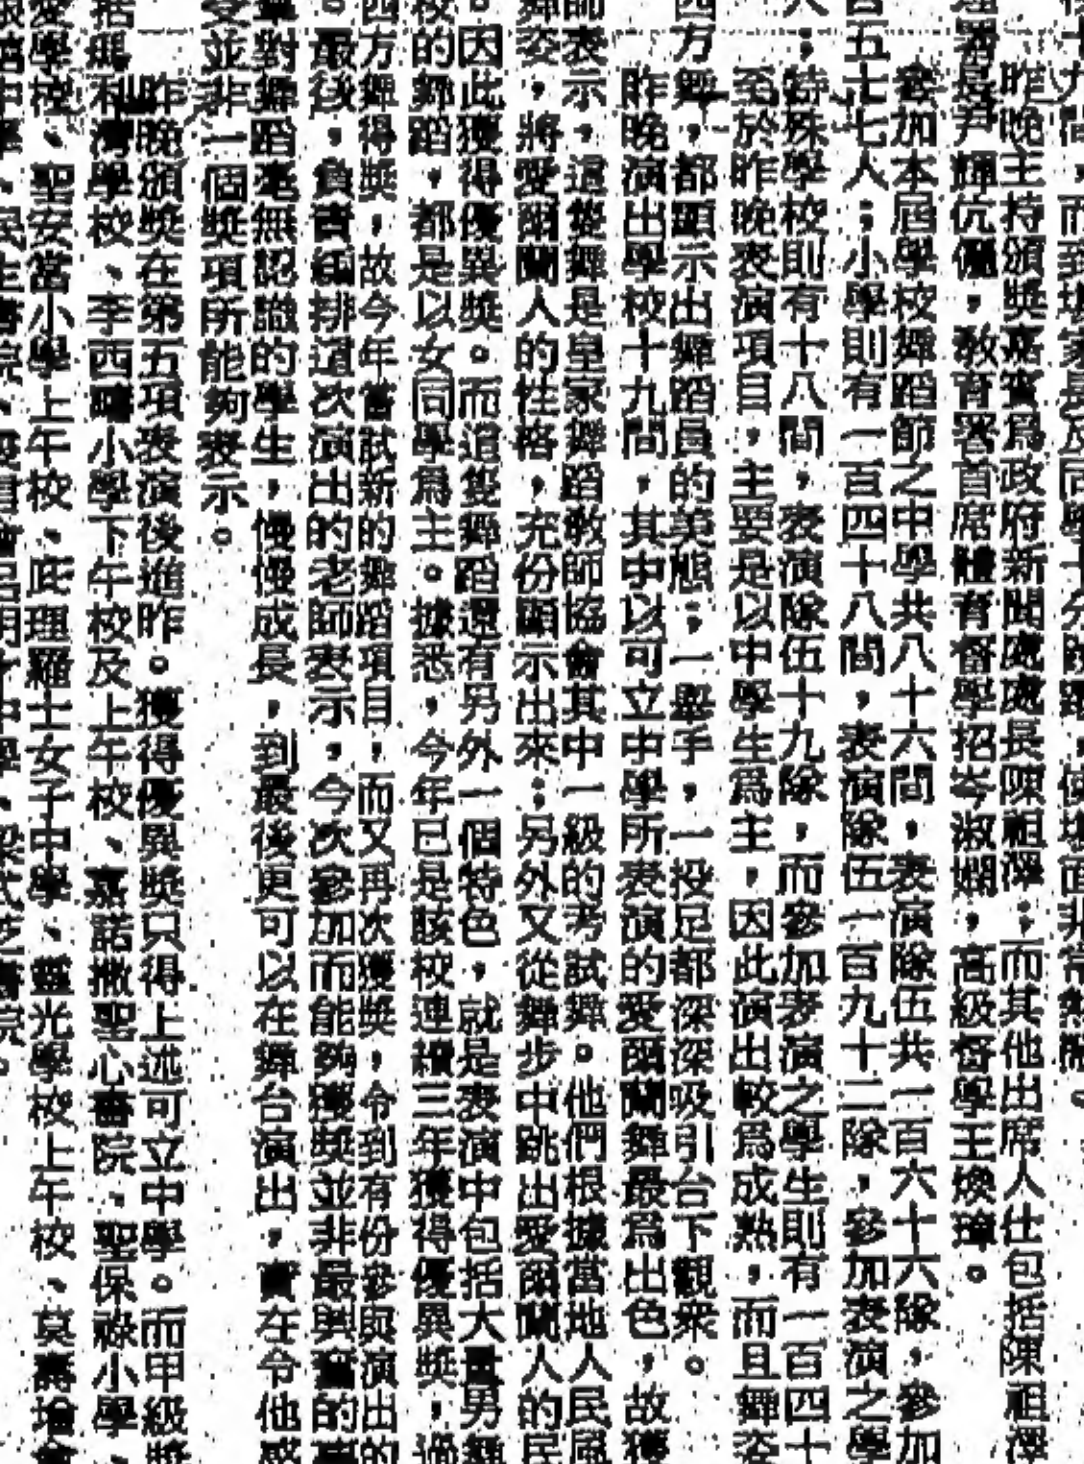 九間，而到場家長及同學十分踴躍，使場面非常熱鬧。
昨晚主持頒獎嘉賓爲政府新聞處處長陳祖澤；而其他出席人仕包括陳祖澤
尹輝伉儷，教育署首席體育督學招岑淑嫻，高級督學王煥璋。
參加本屆學校舞蹈節之中學共八十六間，表演隊伍共一百六十六隊，參加
百五七七人；小學則有一百四十八間，表演隊伍一百九十二隊，參加表演之學
人；特殊學校則有十八間，表演隊伍十九隊，而參加表演之學生則有一百四十
至於昨晚表演項目，主要是以中學生爲主，因此演出較爲成熟，而且舞姿
四方舞，都顯示出舞蹈員的美態；一舉手，一投足都深深吸引台下觀衆。
昨晚演出學校十九間，其中以可立中學所表演的愛爾蘭舞最爲出色，故獲
師表示，這隻舞是皇家舞蹈教師協會其中一級的考試舞。他們根據當地人民風
舞姿，將愛爾蘭人的性格，充份顯示出來；另外又從舞步中跳出愛爾蘭人的民
。因此獲得優異獎。而這隻舞蹈還有另外一個特色，就是表演中包括大量男舞
校的舞蹈，都是以女同學爲主。據悉，今年已是該校連續三年獲得優異獎，過
四方舞得獎，故今年嘗試新的舞蹈項目，而又再次獲獎，令到有份參與演出的
。最後，負責編排這次演出的老師表示，今次參加而能夠獲獎並非最興奮的事
羣對舞蹈毫無認識的學生，慢慢成長，到最後更可以在舞台演出，實在令他感
受並非一個獎項所能夠表示。
昨晚頒獎在第五項表演後進昨。獲得優異獎只得上述可立中學。而甲級獎
括瑪利灣學校、李西疇小學下午校及上午校、嘉諾撒聖心書院、聖保祿小學、
愛學校、聖安當小學上午校、庇理羅士女子中學、靈光學校上午校、莫壽增會
中學、民生書院、